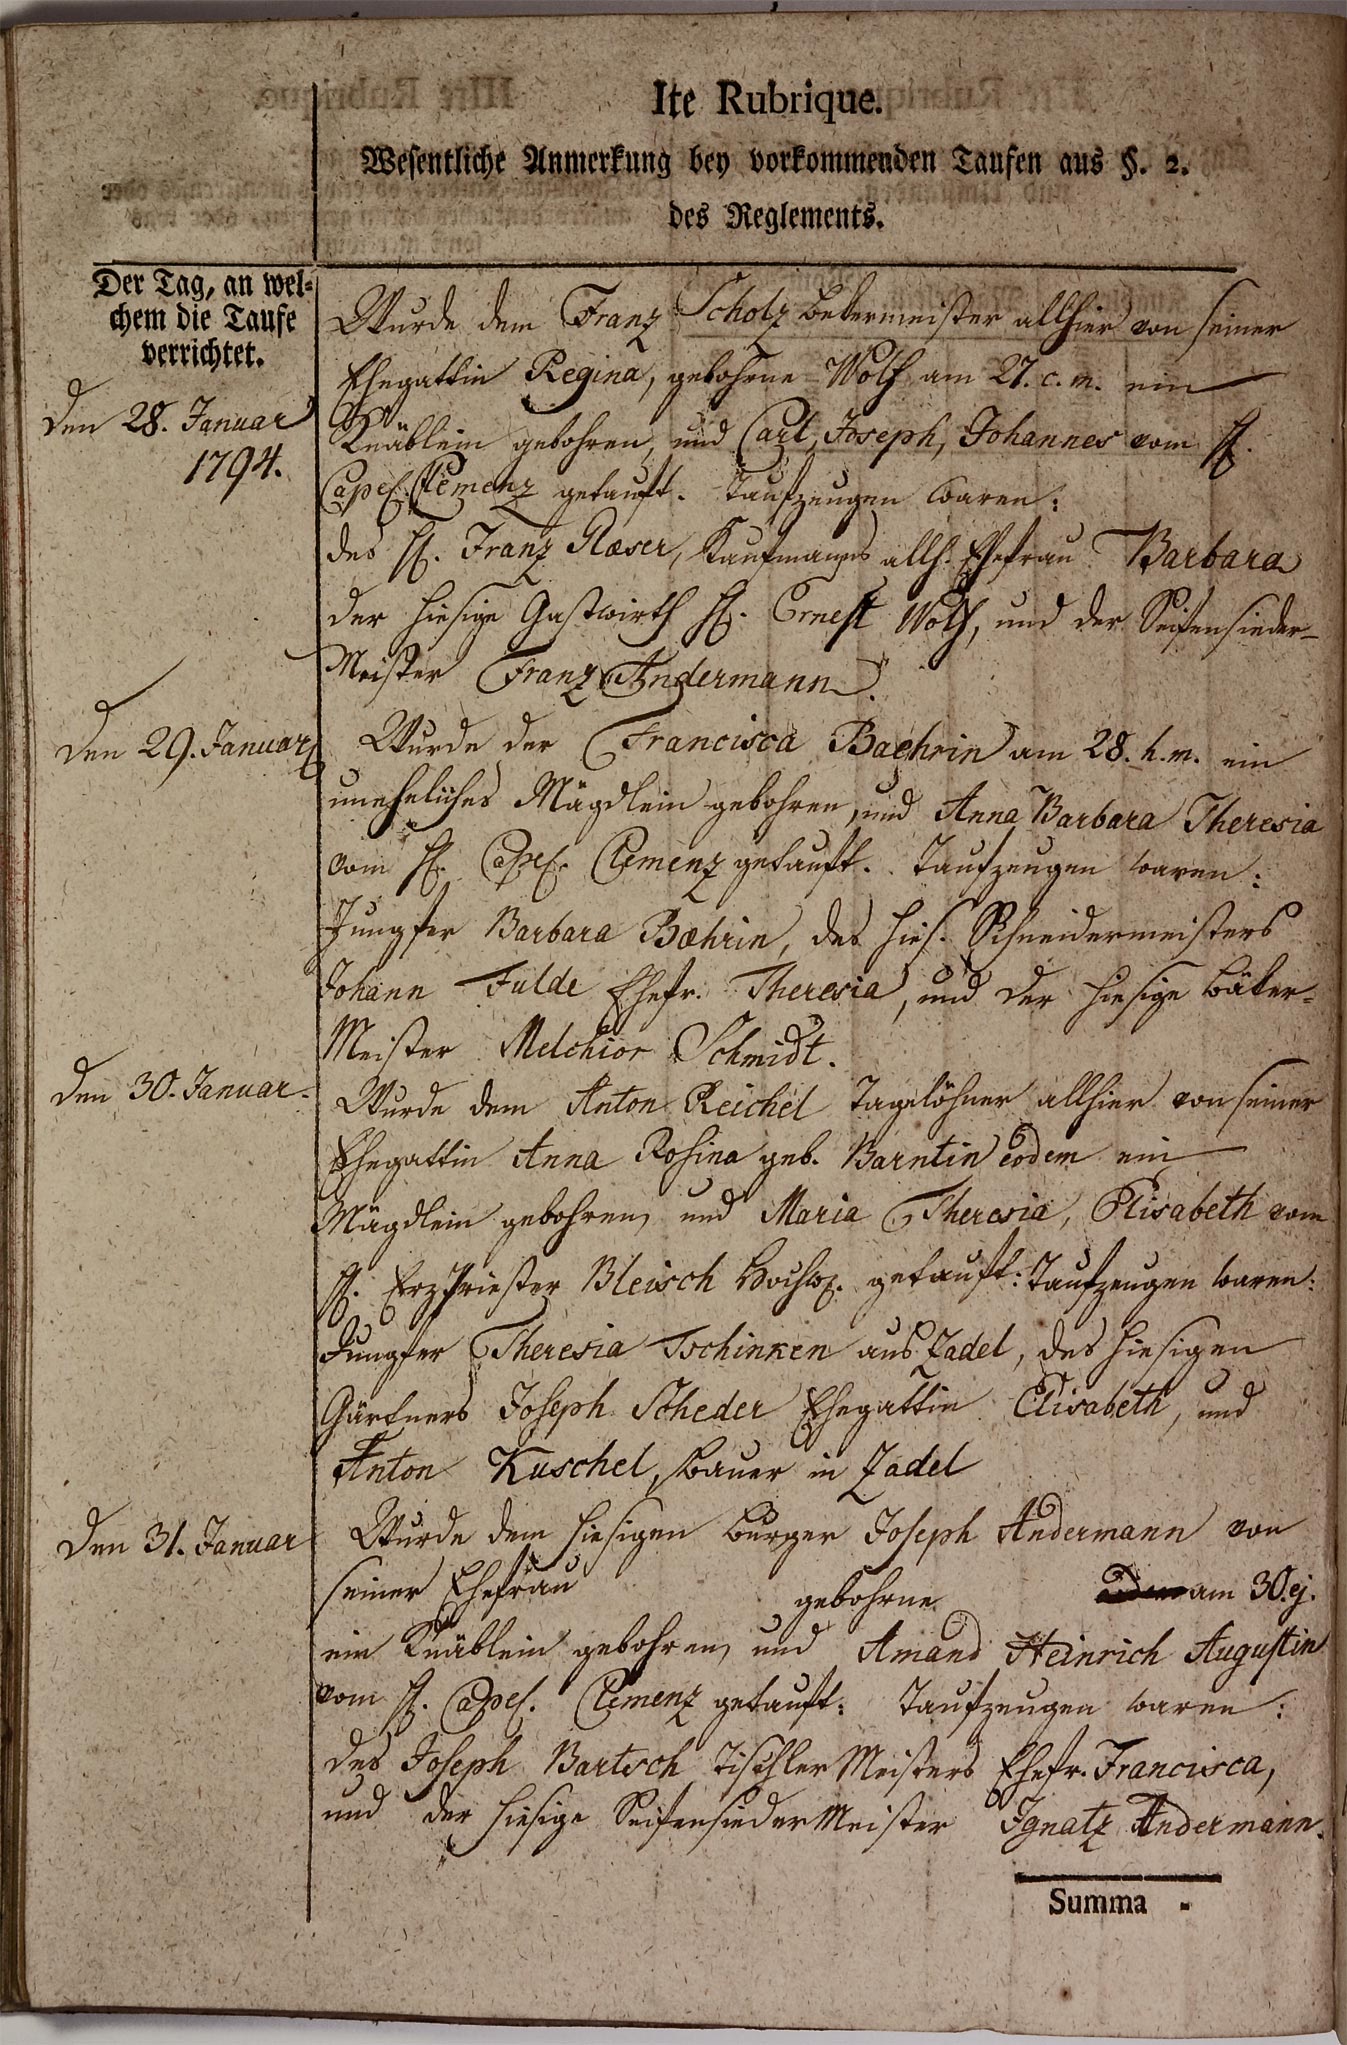 Ite Rubrique.
Wesentliche Anmerkung bey vorkommenden Taufen aus §. 2.
des Reglements.
Der Tag, an wel-
chem die Taufe
verrichtet.
Den 28. Januar
1794.
Wurde dem Franz Scholz bekermeister allhier von seiner
Ehegattin Regina, gebohrne Wolf am 27. c. m. ein
Knäblein gebohren, und Carl, Joseph, Johannes vom H.
Capel. Clemenz getauft. Taufzeugen waren:
des H. Franz Raeser, Kaufmanns allh. Ehefrau Barbara
der hiesige Gastwirth H. Ernest Wolf, und der Seifensieder-
Meister Franz Andermann.
Den 29. Januar
Wurde der Francisca Baehrin am 28. h. m. ein
uneheliches Mägdlein gebohren, und Anna Barbara Theresia
vom H. Capel. Clemenz getauft. Taufzeugen waren:
Jungfer Barbara Bæhrin, des hies. Schneidermeisters
Johann Fulde Ehefr. Theresia, und der hiesige bäker-
Meister Melchior Schmidt.
Den 30. Januar.
Wurde dem Anton Reichel Tagelöhner allhier von seiner
Ehegattin Anna Rosina geb. Barntin eodem ein
Mägdlein gebohren, und Maria Theresia, Elisabeth vom
H. Erzpriester Bleisch getauft: Taufzeugen waren:
Jungfer Theresia Tschinken aus Zadel, des hiesigen
Gärtners Joseph Scheder Ehegattin Elisabeth, und
Anton Kuschel, bauer in Zadel
Den 31. Januar
Wurde dem hiesigen bürger Joseph Andermann von
seiner Ehefrau gebohrne am 30. ej.
ein Knäblein gebohren, und Amand Heinrich Augustin
vom H. Capel. Clemenz getauft: Taufzeugen waren:
des Joseph Bartsch Tischler Meisters Ehefr. Francisca,
und der hiesige Seifensieder Meister Ignatz Andermann.
Summa -